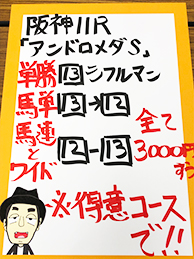 阪神11R
「アンドロメダS」
単勝 13 シフルマン
馬単 13→12
馬連とワイド 12-13
全て3000円ずつ
※得意コースで!!